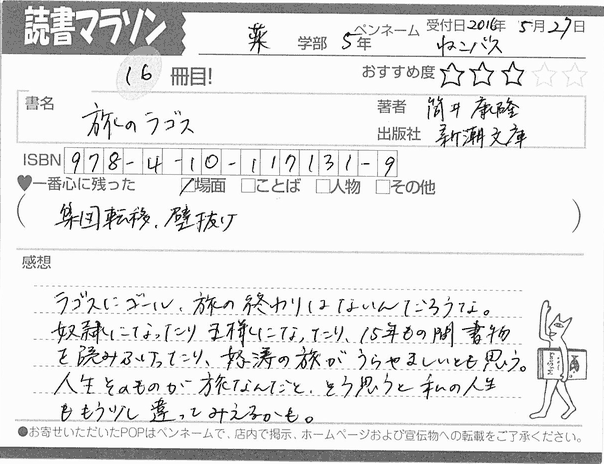 読書マラソン
薬 学部 5年 ペンネーム ねこバス 受付日2016年 5月27日
16 冊目! おすすめ度 ☆☆☆☆☆
書名 旅のラゴス
著者 筒井康隆
出版社 新潮文庫
ISBN 978-4-10-117131-9
♥一番心に残った ☑場面 □ことば □人物 □その他
(集団転移、壁抜け)
感想
ラゴスにゴール、旅の終わりはないんだろうな。
奴隷になったり王様になったり、15年もの間書物
を読みふけったり、波濤の旅がうらやましいとも思う。
人生そのものが旅なんだと、そう思うと私の人生
ももう少し違ってみえるかも。
●お寄せいただいたPOPはペンネームで、店内で掲示、ホームページおよび宣伝物への転載をご了承ください。